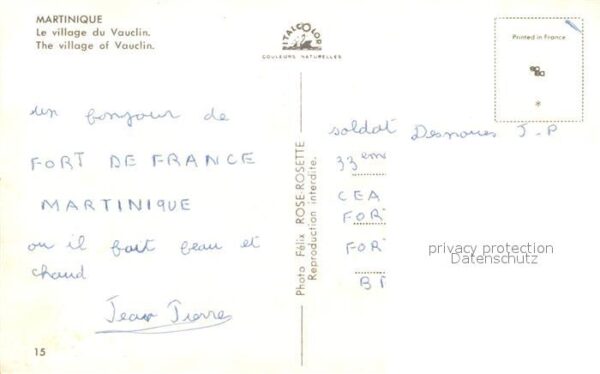 MARTINIQUE
Le village du Vauclin.
The village of Vauclin.
ITALCOLOR
COULEURS NATURELLES
Printed in France
un bonjour de
FORT DE FRANCE
MARTINIQUE
ou il fait beau et
chaud
Jean Pierre
15
Photo Félix ROSE-ROSETTE
Reproduction interdite.
soldat Desnoues J-P
33eme
CEA
FOR
FOR
B
privacy protection
Datenschutz